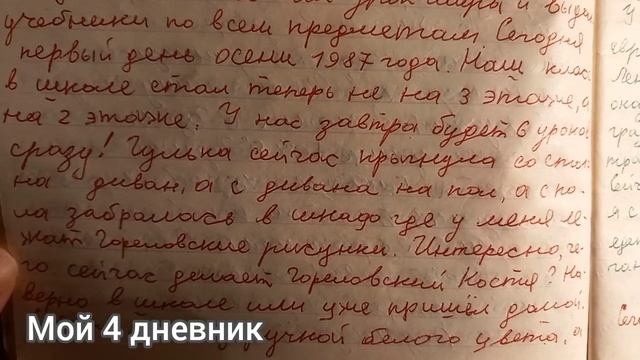 урок мира и выдали
учебники по всем предметам. Сегодня
первый день осени 1987 года. Наш класс
в школе стал теперь не на 3 этаже, а
на 2 этаже. У нас завтра будет 6 уроков
сразу! Гулька сейчас прыгнула со стула
на диван, а с дивана на пол, а с по-
ла забралась в шкаф где у меня ле-
жат Гореловские рисунки. Интересно, че-
го сейчас делает Гореловский Костя? На-
верно в школе или уже пришёл домой.
ручкой белого цвета, а
Мой 4 дневник